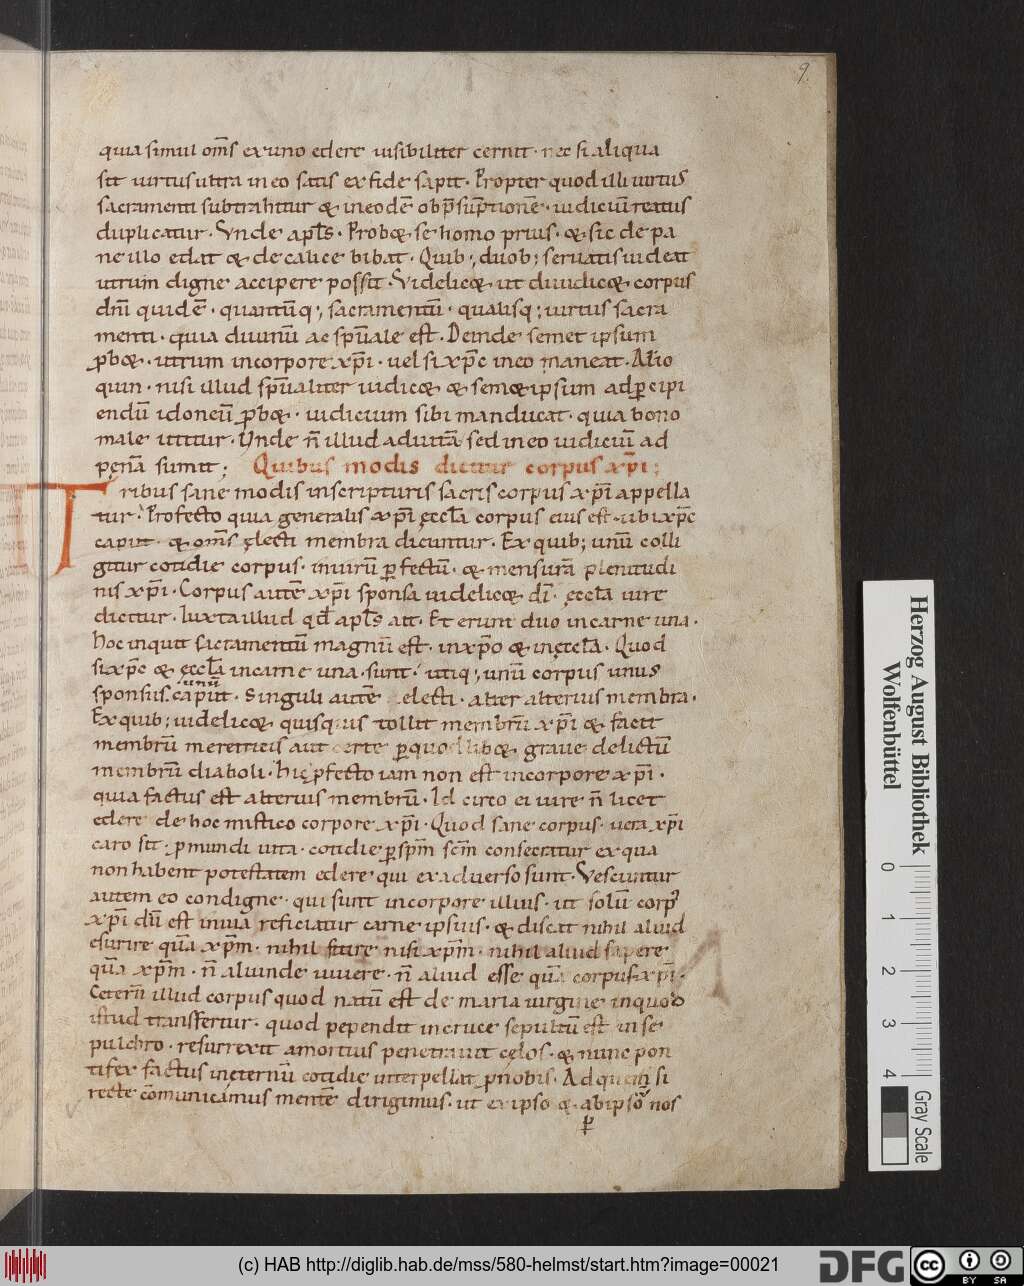 9.
quia simul om̄s ex uno edere uisibiliter cernit · nec si aliqua
sit uirtus ultra in eo satis ex fide sapit · Propter quod illi uirtus
sacramenti subtrahitur & in eodē ob p̄sūptionē · iudiciū reatus
duplicatur · Vnde apl̄s · Prob& se homo prius · & sic de pa
ne illo edat & de calice bibat · Quib; duob; seruatis uideat
utrum digne accipere possit · Videlic& ut diiudic& corpus
dn̄i quidē · quantūq; sacramentū · qualisq; uirtus sacra
menti · quia diuinū ac sp̄uale est · Deinde semet ipsum
ꝓb& · utrum in corpore xp̄i · uel si xp̄c in eo maneat · Alio
quin · nisi illud sp̄ualiter iudic& & sem&ipsum ad ꝑcipi
endū idoneū ꝓb& · iudicium sibi manducat · quia bono
male utitur · Unde n̄ illud ad uitā sed in eo iudiciū ad
pęnā sumit ; Quibus modis dicitur corpus xp̄i ;
Tribus sane modis in scripturis sacris corpus xp̄i appella
tur · Profecto quia generalis xp̄i ęccl̄a corpus eius est · ubi xp̄c
caput · & om̄s ęlecti membra dicuntur · Ex quib; unū colli
gitur cotidie corpus · in uirū ꝑfectū · & mensurā plenitudi
nis xp̄i · Corpus autē xp̄i sponsa uidelic& dī · ęccl̄a iure
dicitur · Iuxta illud qd̄ apl̄s ait · Et erunt duo in carne una ·
hoc inquit sacramentū magnū est · in xp̄o & in ęccl̄a · Quod
si xp̄c & ęccl̄a in carne una · sunt · utiq; unū corpus unus
sponsus · caput · Singuli autē electi · alter alterius membra ·
unū
Ex quib; uidelic& quisquis tollit membrū xp̄i & facit
membrū meretricis aut certe ꝑ quodlib& graue delictū
membrū diaboli · hic ꝓfecto iam non est in corpore xp̄i ·
quia factus est alterius membrū · Id circo ei iure n̄ licet
edere de hoc mistico corpore xp̄i · Quod sane corpus · uera xp̄i
caro sit · ꝓ mundi uita · cotidie ꝑ sp̄m sc̄m consecratur ex qua
non habent potestatem edere qui ex aduerso sunt · Vescuntur
autem eo condigne · qui sunt in corpore illius · ut solū corp᾿
xp̄i dū est in uia reficiatur carne ipsius · & discat nihil aliud
esurire quā xp̄m · nihil sitire nisi xp̄m · nihil aliud sapere
quā xp̄m · n̄ aliunde uiuere · n̄ aliud esse quā corpus xp̄i ·
Ceterū illud corpus quod natū est de maria uirgine in quod
istud transfertur · quod pependit in cruce sepultū est in se
pulchro · resurrexit a mortuis penetrauit cęlos · & nunc pon
tifex factus in ęternū cotidie interpellat ꝓ nobis · Ad quem si
recte cōmunicamus mentē dirigimus · ut ex ipso & ab ipso nos
ꝑ
Herzog August Bibliothek
Wolfenbüttel
0 1 2 3 4
Gray Scale
(c) HAB http://diglib.hab.de/mss/580-helmst/start.htm?image=00021
DFG
cc BY SA